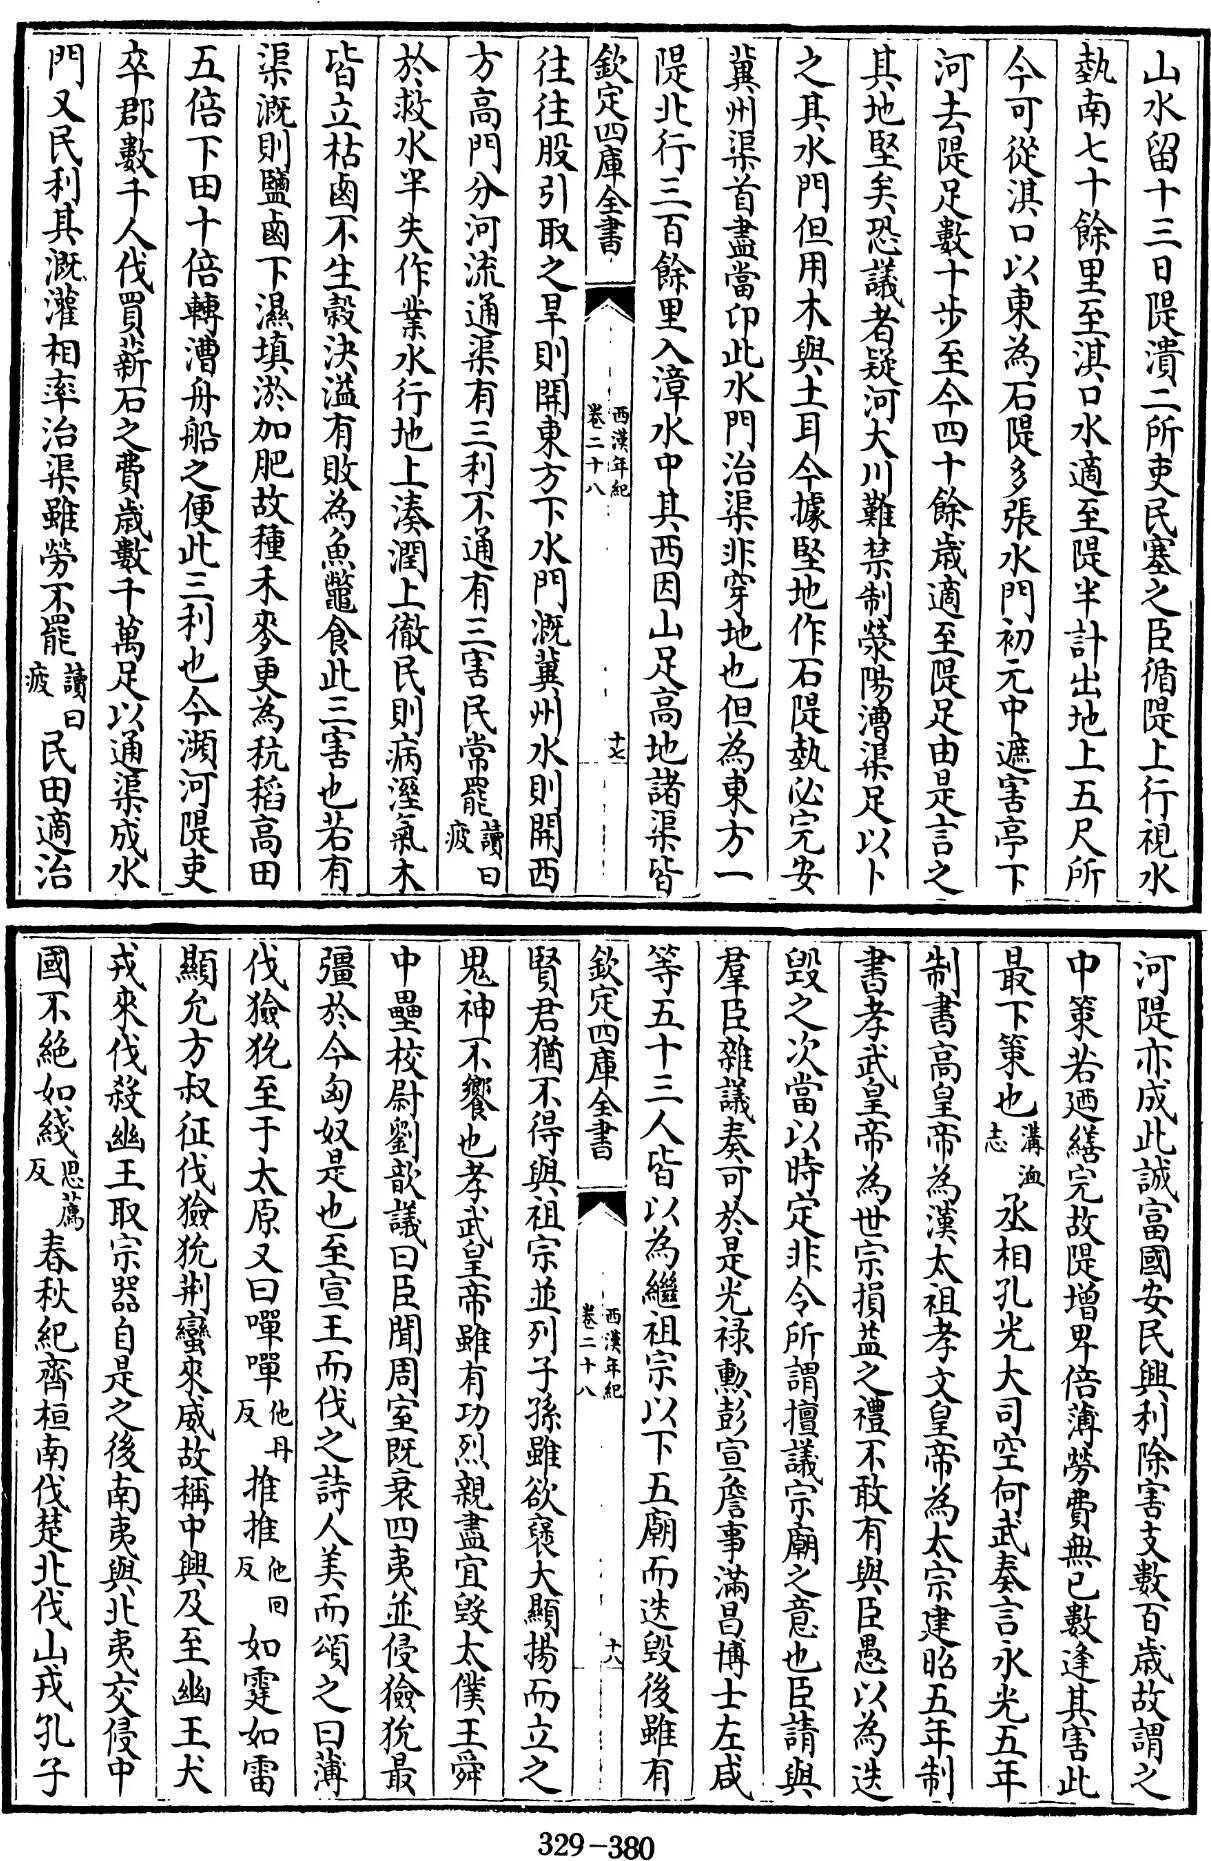 山水留十三日隄潰二所吏民塞之臣循隄上行視水
埶南七十餘里至淇口水適至隄半計出地上五尺所
今可從淇口以東為石隄多張水門初元中遮害亭下
河去隄足數十步至今四十餘歲適至隄足由是言之
其地堅矣恐議者疑河大川難禁制滎陽漕渠足以卜
之其水門但用木與土耳今據堅地作石隄埶必完安
冀州渠首盡當卬此水門治渠非穿地也但為東方一
隄北行三百餘里入漳水中其西因山足高地諸渠皆
欽定四庫全書
西漢年紀
卷二十八
十七
往往股引取之旱則開東方下水門溉冀州水則開西
方高門分河流通渠有三利不通有三害民常罷讀曰疲
於救水半失作業水行地上湊潤上徹民則病溼氣木
皆立枯鹵不生穀決溢有敗為魚鼈食此三害也若有
渠溉則鹽鹵下濕填淤加肥故種禾麥更為秔稻高田
五倍下田十倍轉漕舟船之便此三利也今瀕河隄吏
卒郡數千人伐買薪石之費歲數千萬足以通渠成水
門又民利其溉灌相率治渠雖勞不罷讀曰疲民田適治
河隄亦成此誠富國安民興利除害支數百歲故謂之
中策若廼繕完故隄增卑倍薄勞費無已數逢其害此
最下策也溝洫志丞相孔光大司空何武奏言永光五年
制書高皇帝為漢太祖孝文皇帝為太宗建昭五年制
書孝武皇帝為世宗損益之禮不敢有與臣愚以為迭
毀之次當以時定非令所謂擅議宗廟之意也臣請與
羣臣雜議奏可於是光祿勲彭宣詹事滿昌博士左咸
等五十三人皆以為繼祖宗以下五廟而迭毀後雖有
欽定四庫全書
西漢年紀
卷二十八
十八
賢君猶不得與祖宗並列子孫雖欲襃大顯揚而立之
鬼神不饗也孝武皇帝雖有功烈親盡宜毀太僕王舜
中壘校尉劉歆議曰臣聞周室既衰四夷並侵獫狁最
彊於今匈奴是也至宣王而伐之詩人美而頌之曰薄
伐獫狁至于太原又曰嘽嘽他丹反推推他回反如霆如雷
顯允方叔征伐獫狁荆蠻來威故稱中興及至幽王犬
戎來伐殺幽王取宗器自是之後南夷與北夷交侵中
國不絶如綫思薦反春秋紀齊桓南伐楚北伐山戎孔子
329-380